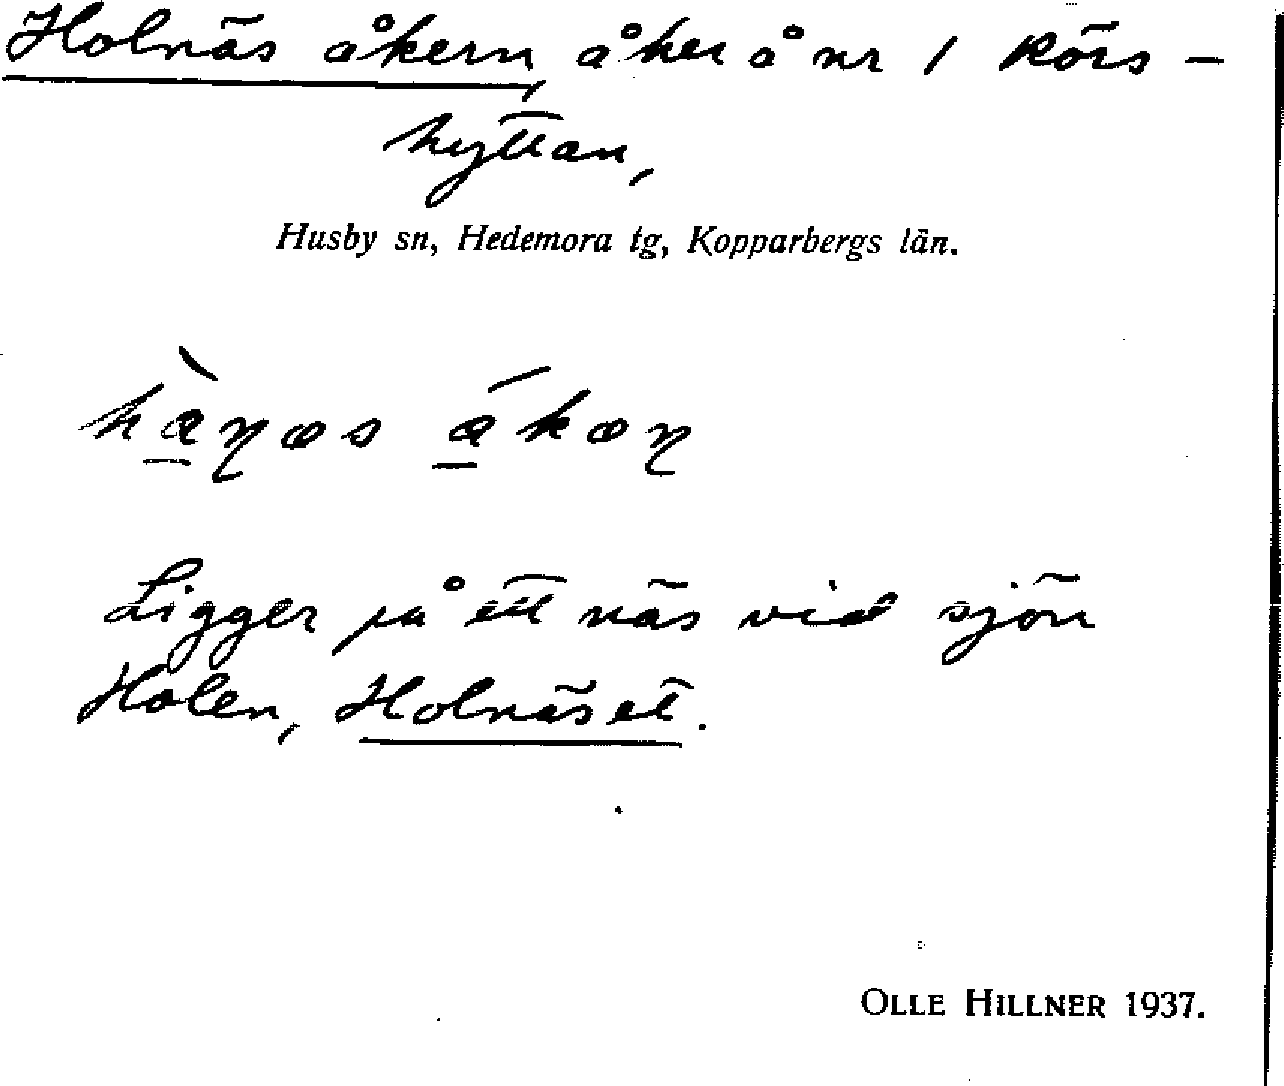 Holnäs åkern, åker å nr 1 Körs-
hyttan,
Husby sn, Hedemora tg, Kopparbergs län.
Ligger på ett näs vid sjön
Holen, Holnäset.
OLLE HILLNER 1937.